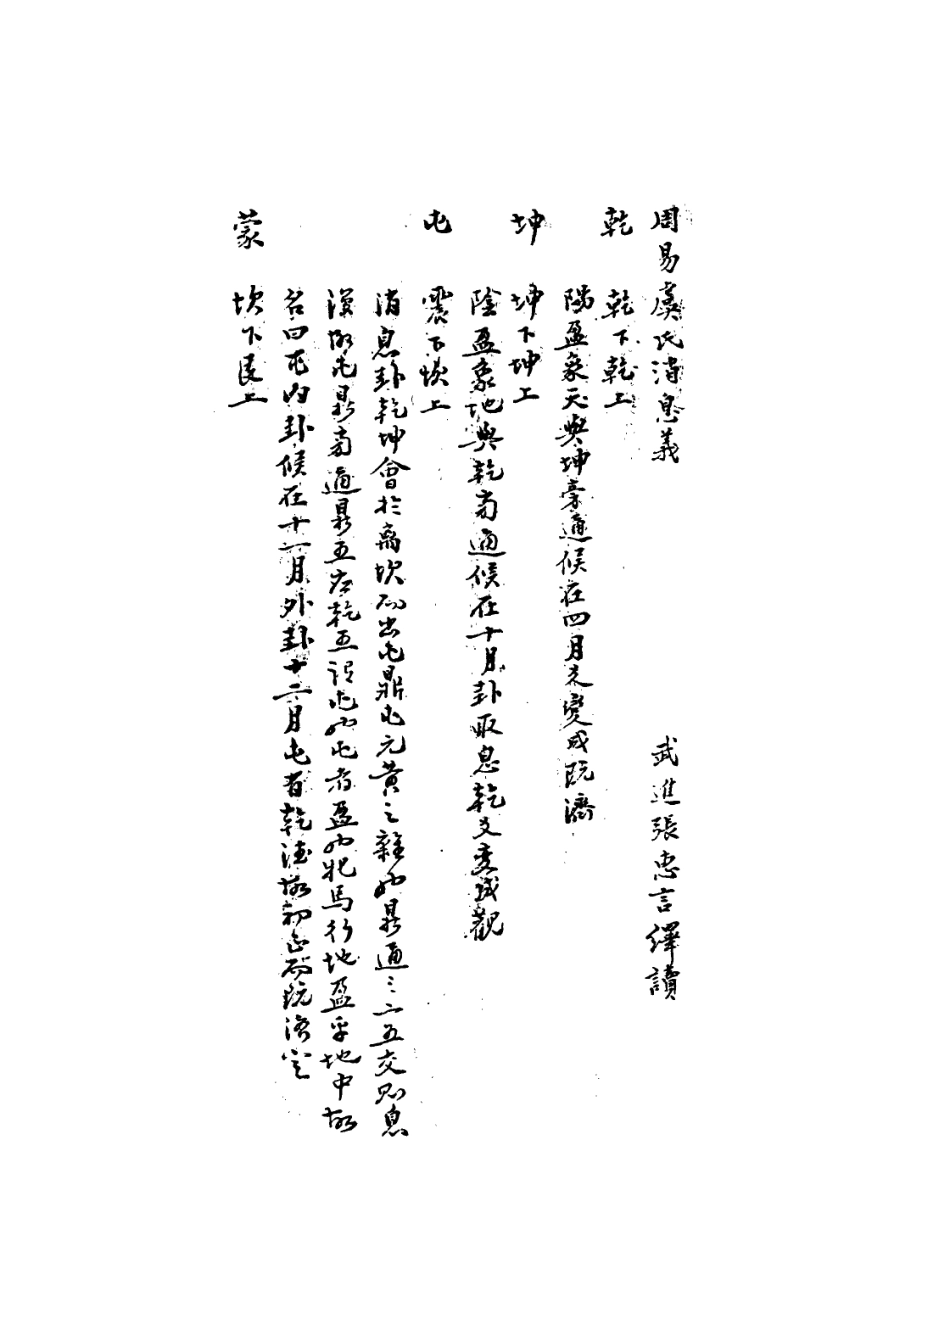 周易虞氏消息義
武進張惠言繹讀
乾 乾下乾上
陽盈象天與坤旁通候在四月夬變成既濟
坤 坤下坤上
陰盈象地與乾旁通候在十月卦取息乾爻變成觀
屯 震下坎上
消息卦乾坤會於离坎而出屯鼎屯元黃之雜也鼎通之二五交則息
屯鼎旁通鼎五應乾五 屯也屯者盈也牝馬行地盈乎地中故
名曰屯內卦候在十一月外卦十二月屯有乾德故初正而既濟定
蒙 坎下艮上